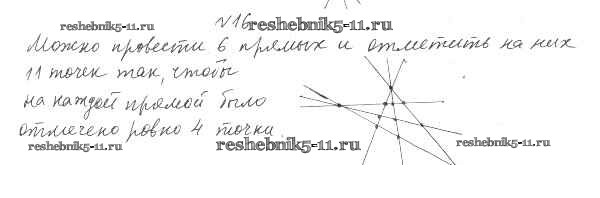 №16
reshebnik5-11.ru reshebnik5-11.ru
Можно провести 6 прямых и отметить на них
11 точек так, чтобы
на каждой прямой было
отмечено ровно 4 точки.
reshebnik5-11.ru reshebnik5-11.ru reshebnik5-11.ru